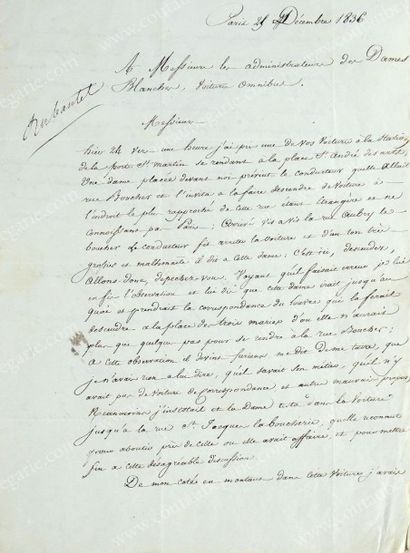 Paris 25 Décembre 1836
A Messieurs les administrateurs des Dames
Blanches, Voiture Omnibus.
Messieurs
hier 24 ver une heure j'ai pris une de vos Voiture a la Station
de la Porte St martin se rendant a la place St André des arts,
Une dame placée devant moi prévint le conducteur quelle allait
rue Boucher et l'invita a la faire descendre de Voiture à
l'endroit le plus rapproché de cette rue étant étrangère et ne
connoissant pas Paris : arrivé vis a vis la rue Aubry le
boucher le conducteur fit arreter la voiture et d'un ton très
grossier et malhonnete il dit a cette dame : C'est ici, descendez,
allons donc, depechez vous. Voyant qu'il faisait erreur je lui
en fis l'observation et lui dis que cette dame irait jusqu'au
quai et prendrait la correspondance du Louvre qui la ferait
descendre a la place des trois maries d'ou elle n'aurait
plus que quelque pas pour se rendre à la rue Boucher :
a cette observation il devint furieux me dit de me taire, que
je n'avais rien a lui dire, qu'il savait son métier, qu'il n'y
avait pas de Voiture de Correspondance et autres mauvais propos
Neanmoins j'insistait et la Dame resta dans la voiture
jusqu'à la rue St Jacques la boucherie, quelle reconnut
pour aboutir près de celle ou elle avait affaire, et pour mettre
fin a cette désagréable discussion.
De mon coté en montant dans cette Voiture j'avais